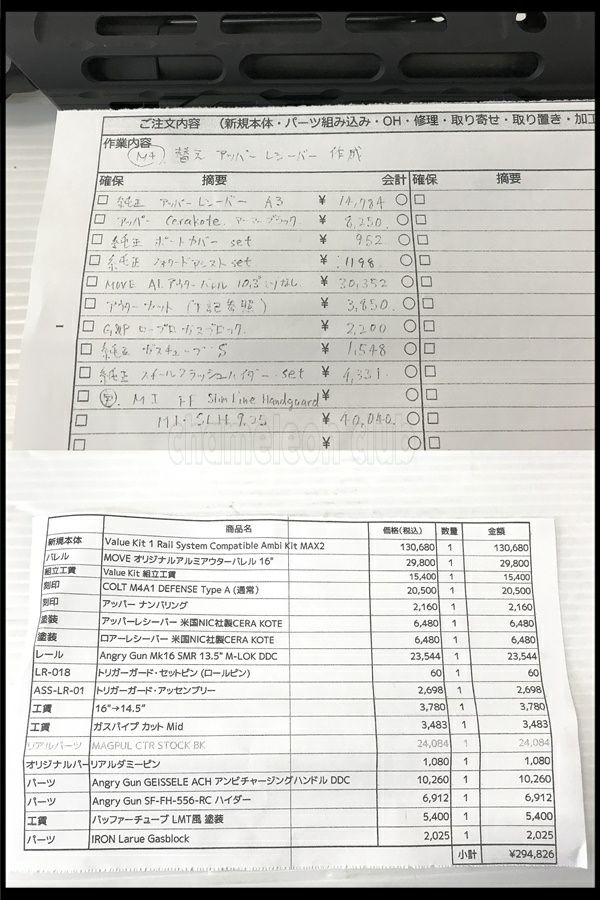 ご注文内容 (新規本体・パーツ組み込み・OH・修理・取り寄せ・取り置き・加工
作業内容
M4 替え アッパーレシーバー 作成
確保 摘要 会計 確保 摘要
純正 アッパーレシーバー A3 ¥ 14,784
アッパー Cerakote アーマーブラック ¥ 8,250.
純正 ポートカバー set ¥ 952
純正 フォワードアシスト set ¥ 1198.
MOVE Al.アウターバレル 10.3" なし ¥ 30,352
アウターカット (下記参照) ¥ 3,850.
G&P ロープロ ガスブロック ¥ 2,200
純正 ガスチューブ S ¥ 1,548
純正 スチールフラッシュハイダー set ¥ 4,331
MI FF Slim Line Handguard ¥
MI-SLH 9.25 ¥ 40,040.
¥
chameleon club
商品名 価格(税込) 数量 金額
新規本体 Value Kit 1 Rail System Compatible Ambi Kit MAX2 130,680 1 130,680
バレル MOVE オリジナルアルミアウターバレル 16" 29,800 1 29,800
組立工賃 Value Kit 組立工賃 15,400 1 15,400
刻印 COLT M4A1 DEFENSE Type A (通常) 20,500 1 20,500
刻印 アッパー ナンバリング 2,160 1 2,160
塗装 アッパーレシーバー 米国NIC社製CERA KOTE 6,480 1 6,480
塗装 ロアーレシーバー 米国NIC社製CERA KOTE 6,480 1 6,480
レール Angry Gun Mk16 SMR 13.5" M-LOK DDC 23,544 1 23,544
LR-018 トリガーガード・セットピン (ロールピン) 60 1 60
ASS-LR-01 トリガーガード・アッセンブリー 2,698 1 2,698
工賃 16"→14.5" 3,780 1 3,780
工賃 ガスパイプ カット Mid 3,483 1 3,483
リアルパーツ MAGPUL CTR STOCK BK 24,084 1 24,084
オリジナルパー リアルダミーピン 1,080 1 1,080
パーツ Angry Gun GEISSELE ACH アンビチャージングハンドル DDC 10,260 1 10,260
パーツ Angry Gun SF-FH-556-RC ハイダー 6,912 1 6,912
工賃 バッファーチューブ LMT風 塗装 5,400 1 5,400
パーツ IRON Larue Gasblock 2,025 1 2,025
小計 ¥294,826